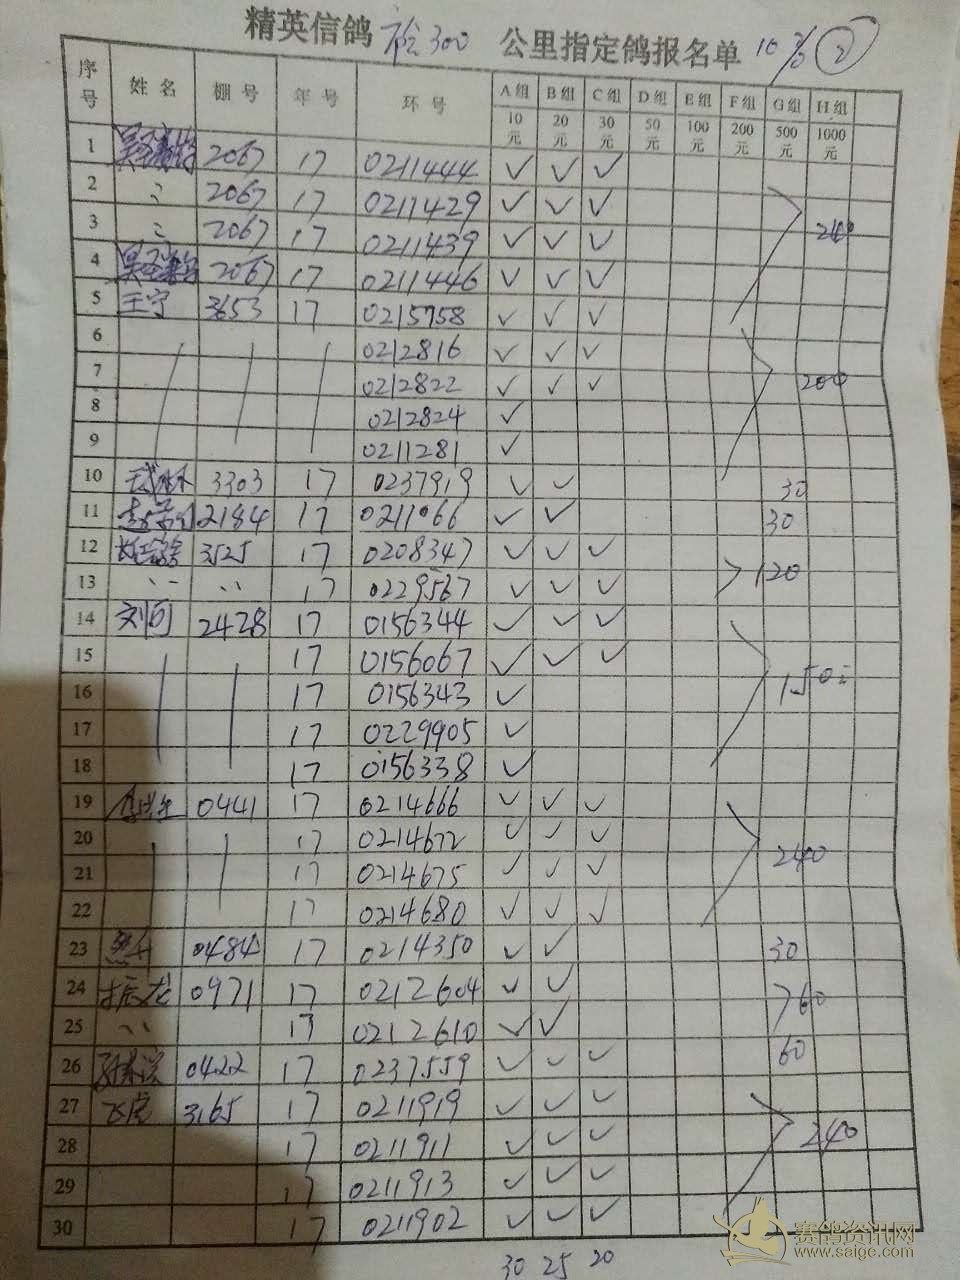 精英信鸽 300 公里指定鸽报名单 10 2
序号 姓名 棚号 年号 环号 A组 B组 C组 D组 E组 F组 G组 H组
10元 20元 30元 50元 100元 200元 500元 1000元
1 2067 17 0211444 ✓ ✓ ✓
2 〃 2067 17 0211429 ✓ ✓ ✓
3 〃 2067 17 0211439 ✓ ✓ ✓ 240
4 2067 17 0211446 ✓ ✓ ✓
5 王宁 3653 17 0215758 ✓ ✓ ✓
6 0212816 ✓ ✓ ✓
7 0212822 ✓ ✓ ✓ 200
8 0212824 ✓
9 0211281 ✓
10 3303 17 0237919 ✓ ✓ 30
11 2184 17 0211066 ✓ ✓ 30
12 3525 17 0208347 ✓ ✓ ✓
13 〃 〃 17 0229567 ✓ ✓ ✓ 120
14 2428 17 0156344 ✓ ✓ ✓
15 17 0156067 ✓ ✓ ✓
16 17 0156343 ✓ 150元
17 17 0229905 ✓
18 17 0156338 ✓
19 0441 17 0214666 ✓ ✓ ✓
20 17 0214672 ✓ ✓ ✓
21 17 0214675 ✓ ✓ ✓ 240
22 17 0214680 ✓ ✓ ✓
23 0484 17 0214350 ✓ ✓ 30
24 振龙 0971 17 0212604 ✓ ✓
25 〃 17 0212610 ✓ ✓ 60
26 0422 17 0237559 ✓ ✓ ✓ 60
27 飞虎 3165 17 0211919 ✓ ✓ ✓
28 17 0211911 ✓ ✓ ✓ 240
29 17 0211913 ✓ ✓ ✓
30 17 0211902 ✓ ✓ ✓
30 25 20
赛鸽资讯网
www.saige.com